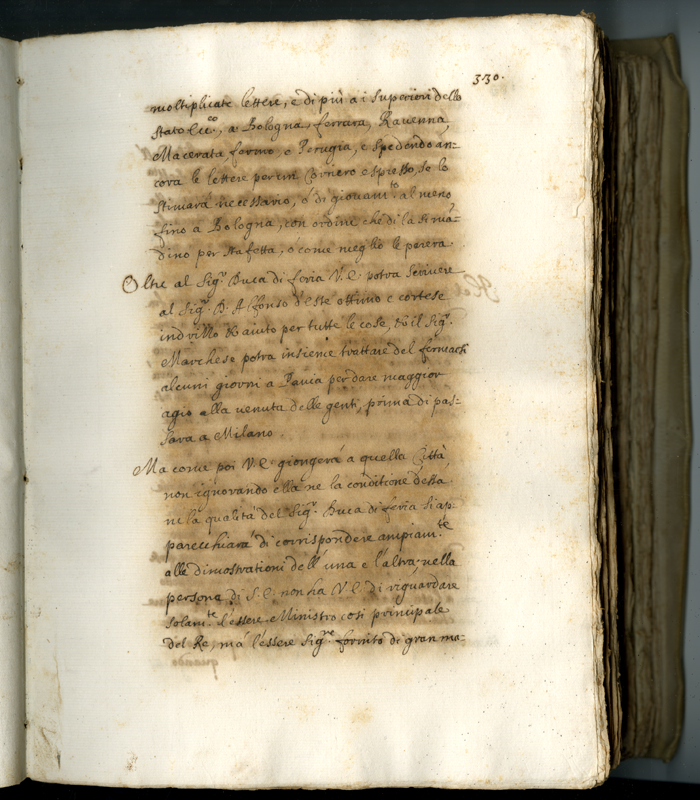 330.
moltiplicate lettere, e di più a i Superiori dello
stato Ecc.co, a Bologna, ferrara, Ravenna,
Macerata, fermo, e Perugia, e spedendo an-
cora le lettere per un Corriero espresso, se lo
stimarà necessario, ò di giovam.to al meno
fino a Bologna, con ordine che di là si mã-
dino per staffetta, ò come meglio le parerà.
Oltre al Sig.r Duca di feria V.E. potrà scrivere
al Sig.r D. Alfonso d'este ottimo e cortese
indrizzo & aiuto per tutte le cose, & il Sig.r
Marchese potrà insieme trattare del fermarsi
alcuni giorni a Pavia per dare maggior
agio alla venuta delle genti, prima di pas-
sare a Milano.
Ma come poi V.E. giongerà a quella Città,
non ignorando ella ne la conditione d'essa
ne la qualità del Sig.r Duca di feria si ap-
parecchiarà di corrispondere ampiam.te
alle dimostrationi dell'una e l'altra, nella
persona di S.E. non ha V.E. di riguardare
solam.te l'essere Ministro così principale
del Re, mà l'essere Sig.re fornito di gran ma-
quando